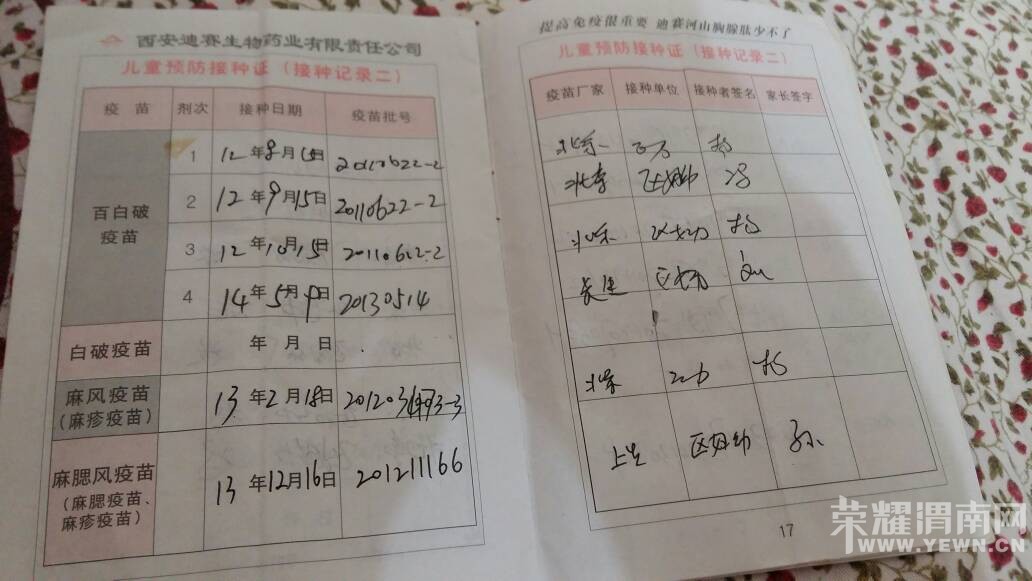 西安迪赛生物药业有限责任公司
儿童预防接种证（接种记录二）
疫 苗 剂次 接种日期 疫苗批号
百白破疫苗
1 12年8月15日 20110622-2
2 12年9月15日 20110622-2
3 12年10月15日 20110622-2
4 14年5月9日 20130514
白破疫苗 年 月 日
麻风疫苗
（麻疹疫苗）
13年2月18日
麻腮风疫苗
（麻腮疫苗、
麻疹疫苗）
13年12月16日 201211166
提高免疫很重要 迪赛河山胸腺肽少不了
儿童预防接种证（接种记录二）
疫苗厂家 接种单位 接种者签名 家长签字
北京
北京 区妇幼
北京 区妇幼
长生 区妇幼
北京
上生 区妇幼 孙
17
荣耀渭南网
WWW.YEWN.CN